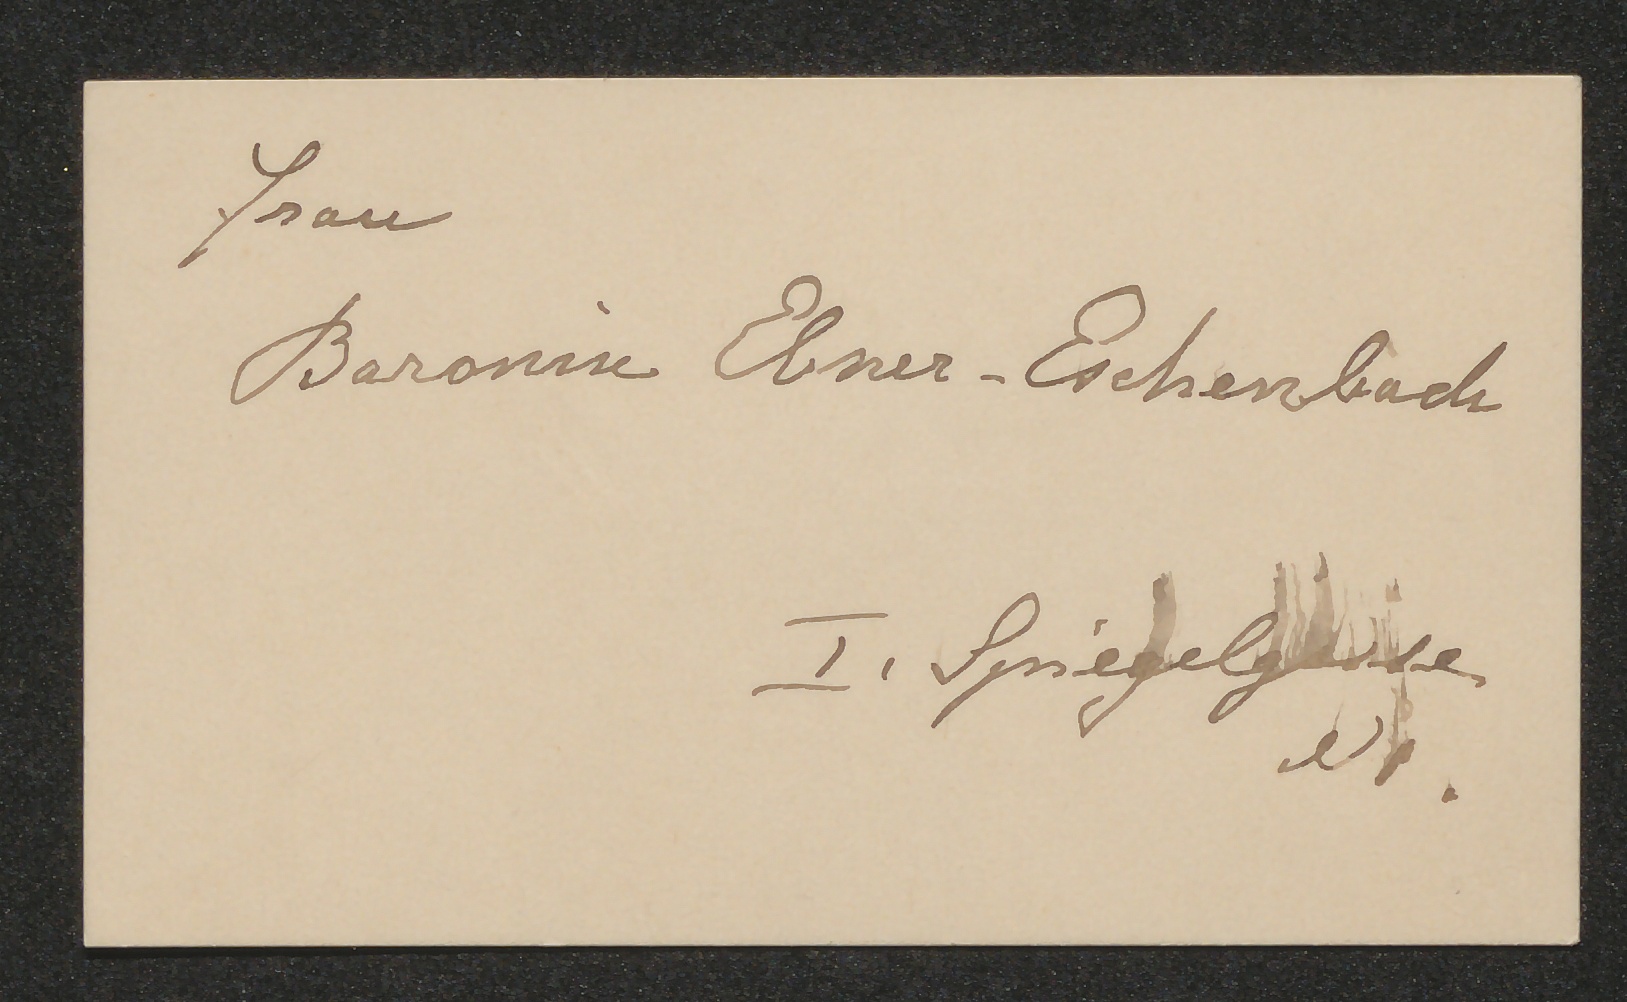 Frau
Baronin Ebner-Eschenbach
I. Spiegelgasse